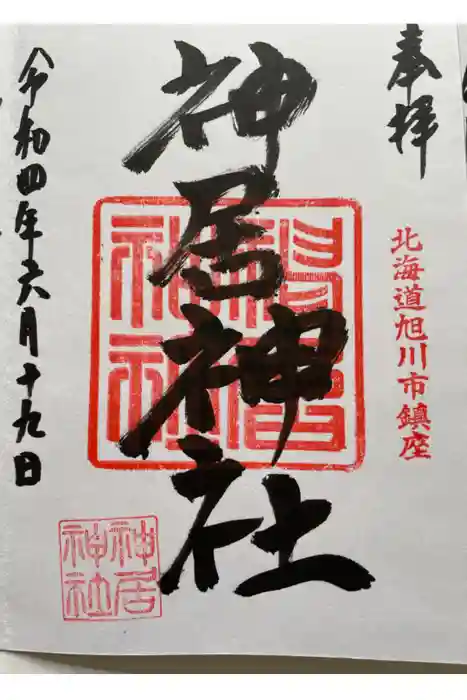 奉拝
北海道旭川市鎮座
神居神社
神居
神社
神居
神社
令和四年六月十九日